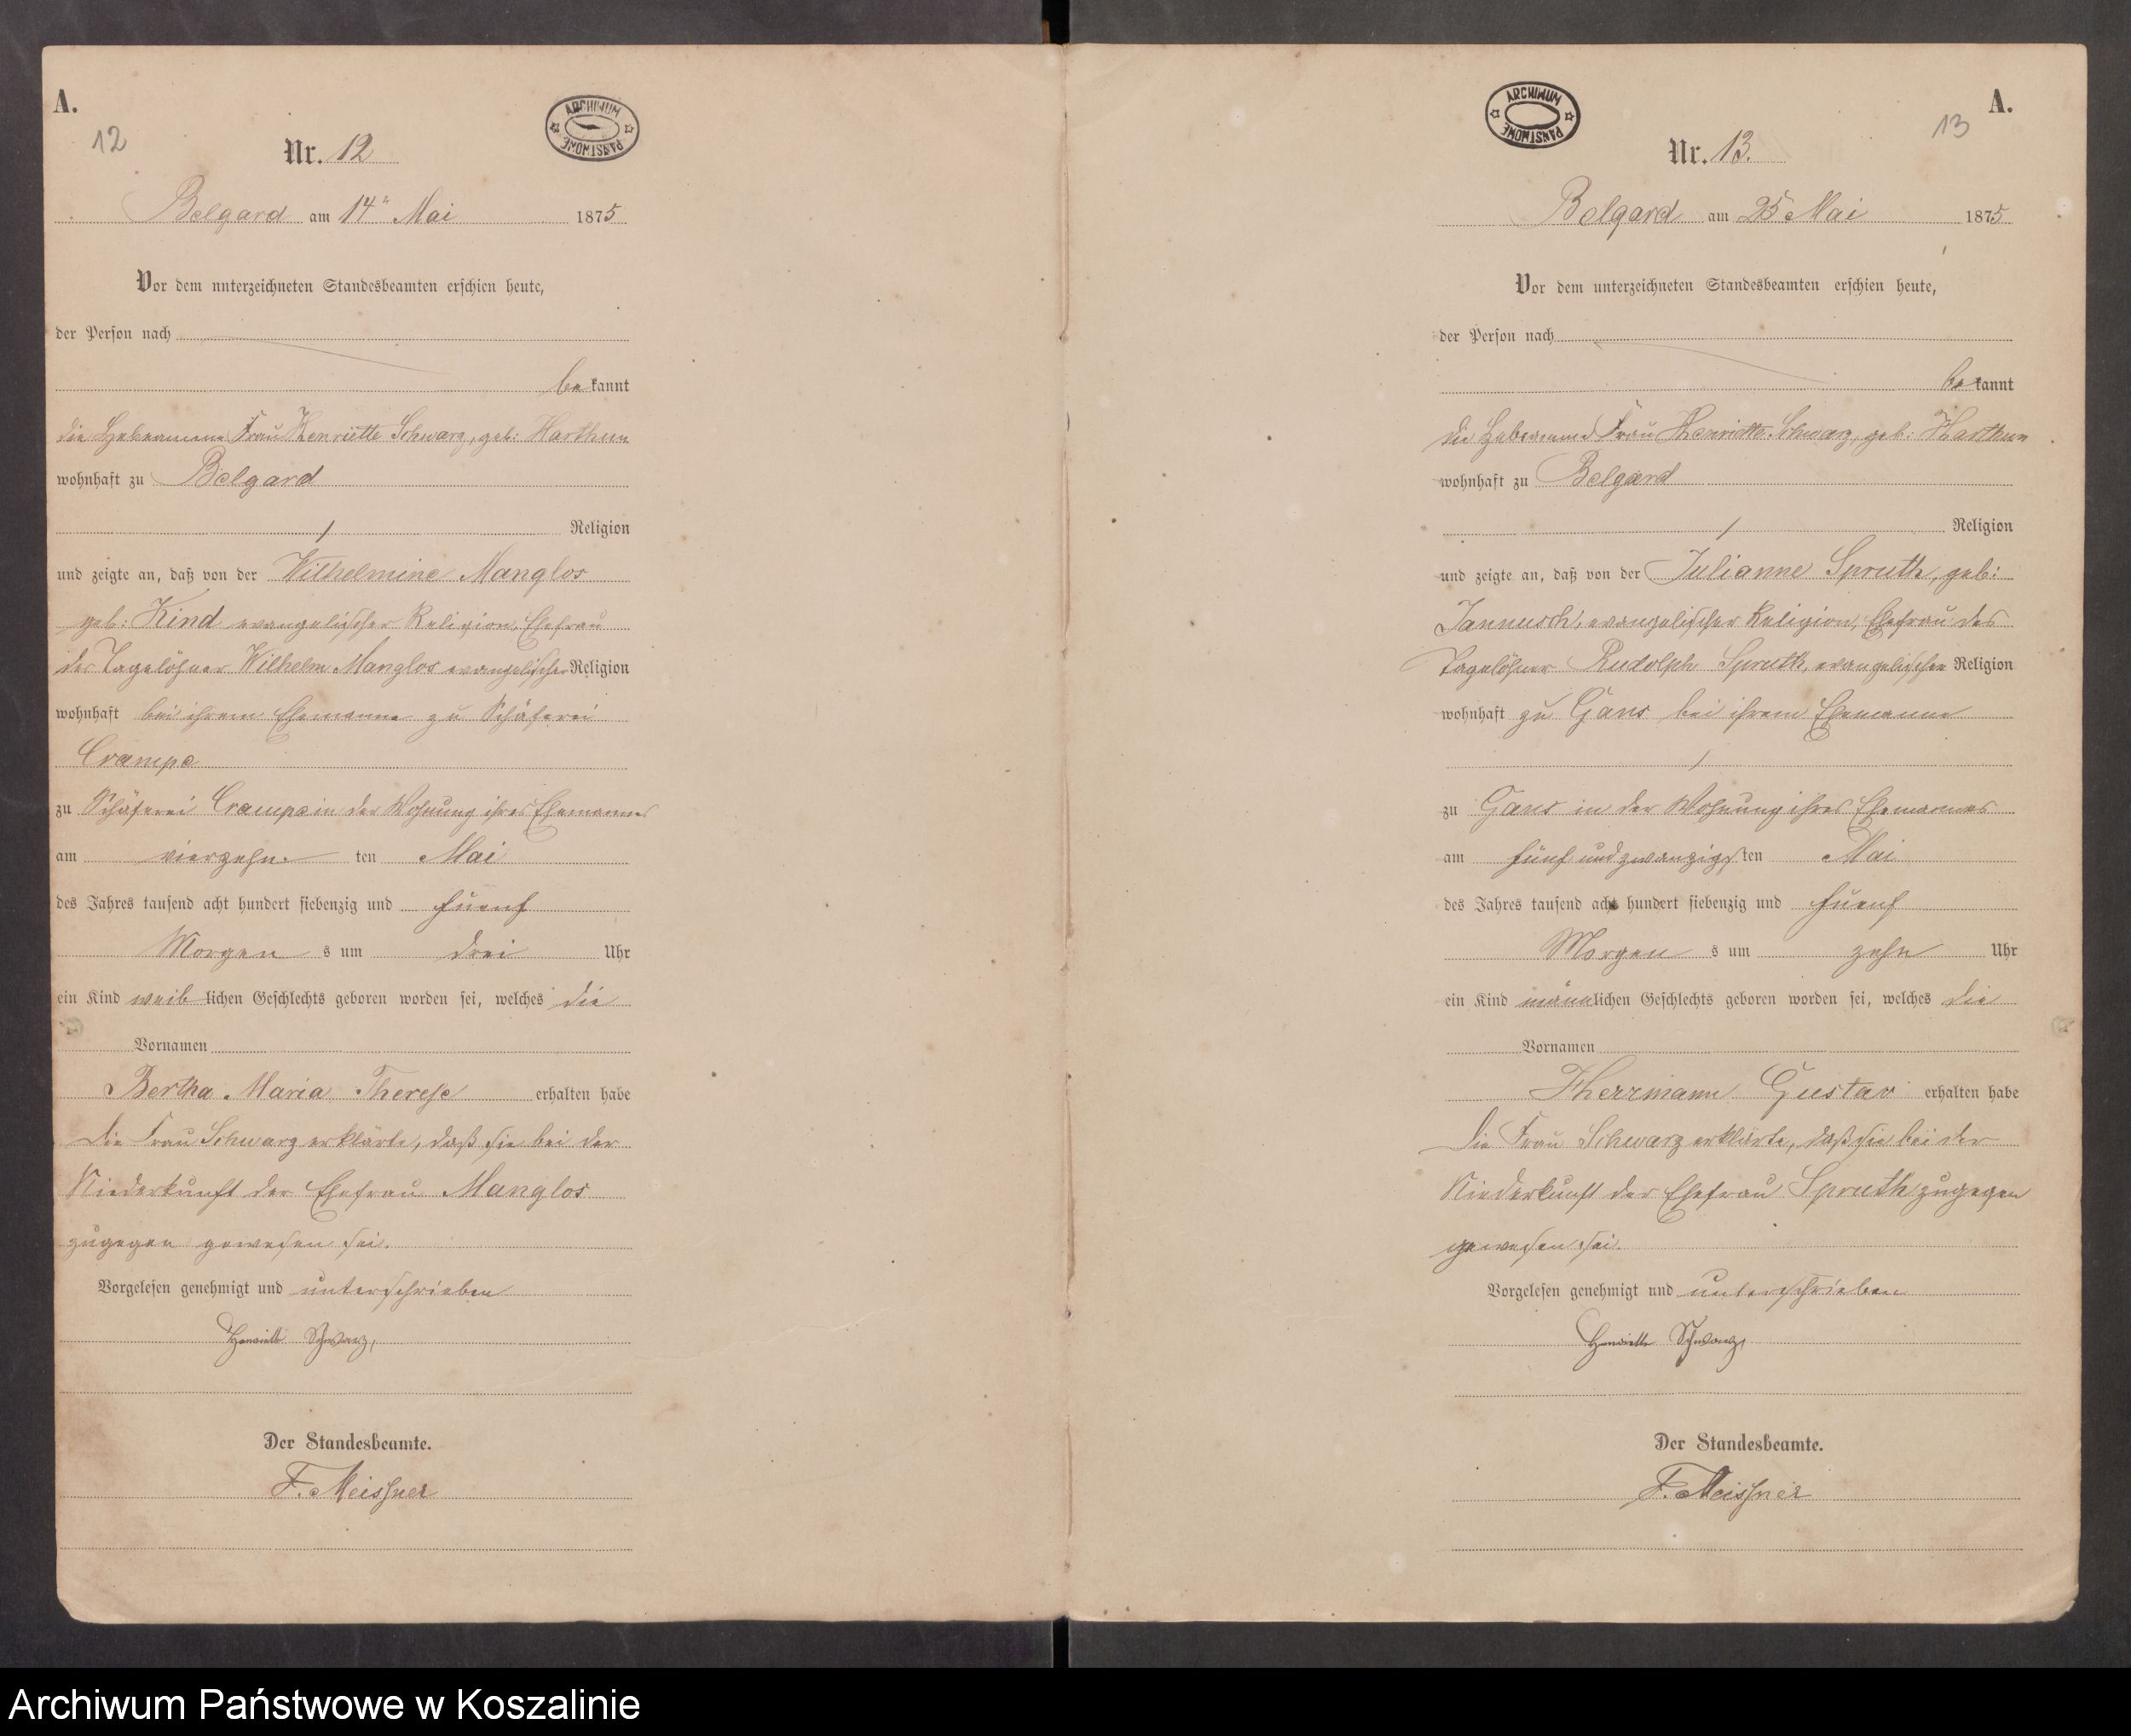 A.
12
ARCHIWUM PAŃSTWOWE
Nr. 12
Belgard am 14" Mai 1875
Vor dem unterzeichneten Standesbeamten erschien heute,
der Person nach
bekannt
die Hebeamme Frau Henriette Schwarz, geb: Harthun
wohnhaft zu Belgard
/ Religion
und zeigte an, daß von der Wilhelmine Manglos
geb: Kind evangelischer Religion, Ehefrau
des Tagelöhner Wilhelm Manglos evangelischer Religion
wohnhaft bei ihrem Ehemanne zu Schäferei
Crampe
zu Schäferei Crampe in der Wohnung ihres Ehemannes
am vierzehn ten Mai
des Jahres tausend acht hundert siebenzig und fuenf
Morgen s um drei Uhr
ein Kind weiblichen Geschlechts geboren worden sei, welches die
Vornamen
Bertha Maria Therese erhalten habe
Die Frau Schwarz erklärte, daß sie bei der
Niederkunft der Ehefrau Manglos
zugegen gewesen sei.
Vorgelesen genehmigt und unterschrieben
Henriette Schwarz,
Der Standesbeamte.
F. Meissner
A.
13
ARCHIWUM PAŃSTWOWE
Nr. 13.
Belgard am 25 Mai 1875
Vor dem unterzeichneten Standesbeamten erschien heute,
der Person nach
bekannt
die Hebeamme Frau Henriette Schwarz, geb: Harthun
wohnhaft zu Belgard
/ Religion
und zeigte an, daß von der Julianne Spruth, geb:
Jannusch, evangelischer Religion, Ehefrau des
Tagelöhner Rudolph Spruth, evangelischer Religion
wohnhaft zu Gans bei ihrem Ehemanne
/
zu Gans in der Wohnung ihres Ehemannes
am fünf und zwanzigsten Mai
des Jahres tausend acht hundert siebenzig und fuenf
Morgen s um zehn Uhr
ein Kind männlichen Geschlechts geboren worden sei, welches die
Vornamen
Herrmann Gustav erhalten habe
Die Frau Schwarz erklärte, daß sie bei der
Niederkunft der Ehefrau Spruth zugegen
gewesen sei.
Vorgelesen genehmigt und unterschrieben
Henriette Schwarz,
Der Standesbeamte.
F. Meissner
Archiwum Państwowe w Koszalinie